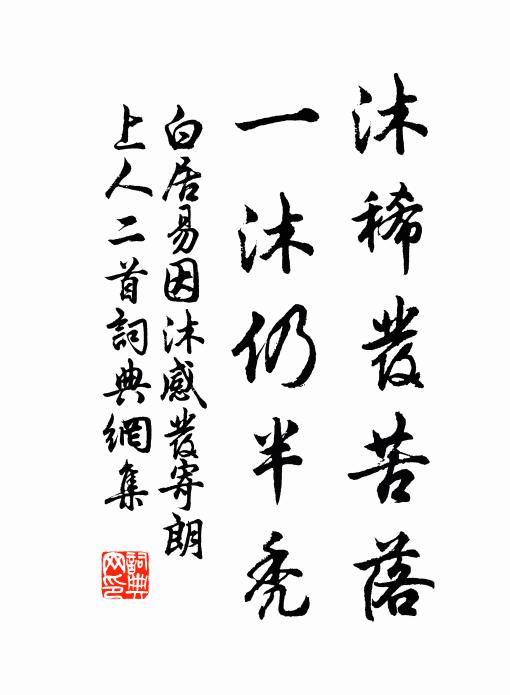 沐稀發苦落
一沐仍半禿
白居易因沐感發寄朗
上人二首詞典網集
詞典
网印